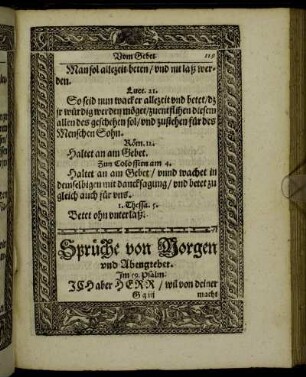 Vom Gebet. 119
Man sol allezeit beten / vnd nit laß wer-
den.
Luce. 21.
So seid nun wacker allezeit vnd betet / dz
jr würdig werden möget / zuentfliehen diesem
allen des geschehen sol / vnd zustehen für des
Menschen Sohn.
Röm. 12.
Haltet an am Gebet.
Zun Colossern am 4.
Haltet an am Gebet / vnnd wachet in
demselbigen mit dancksagung / vnd betet zu
gleich auch für vns.
1. Thessa. 5.
Betet ohn vnterlaß.
Sprüche von Morgen
vnd Abentgebet.
Im 59. Psalm:
ICH aber HERR / wil von deiner
macht